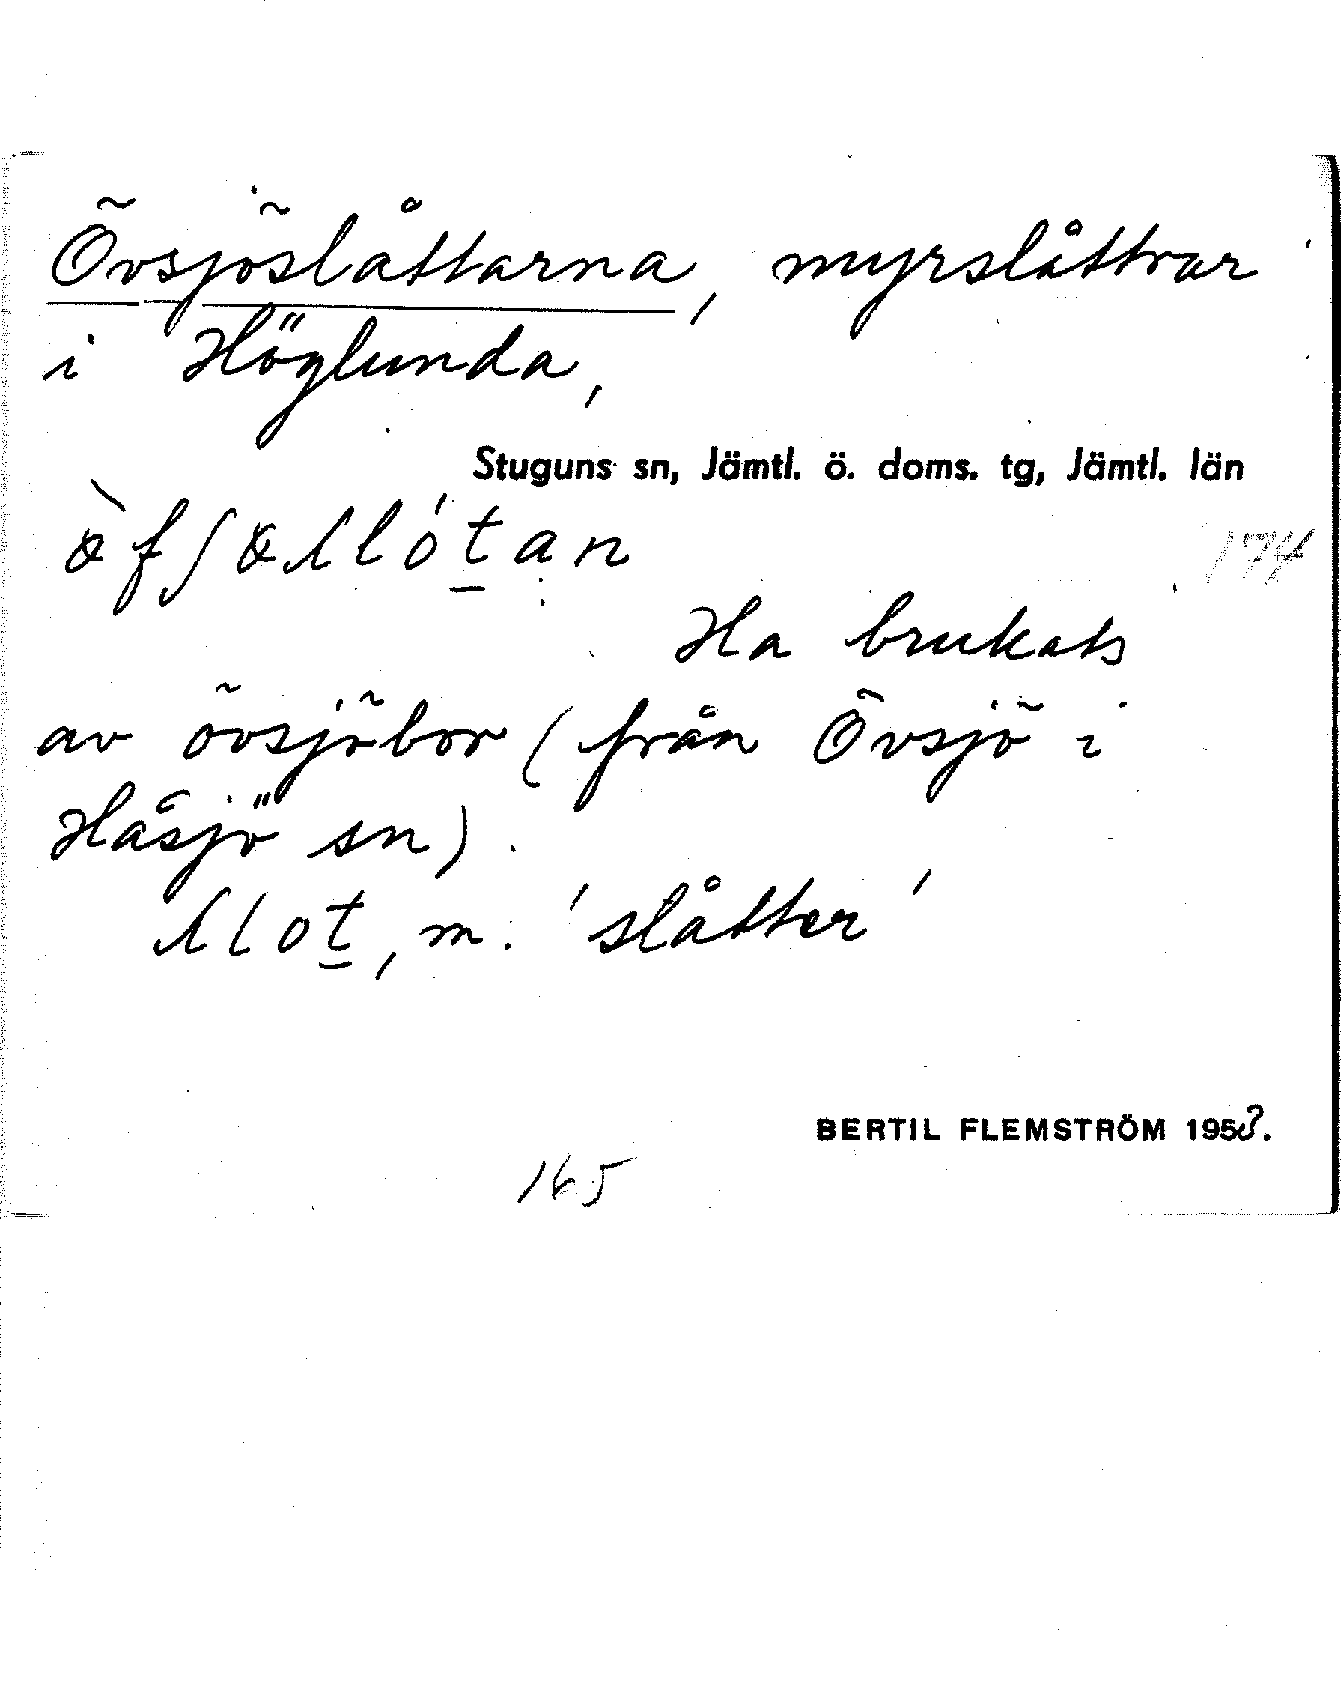 Övsjöslåttarna, myrslåttrar
i Höglunda,
Stuguns sn, Jämtl. ö. doms. tg, Jämtl. län
174
Ha brukats
av övsjöbor (från Övsjö i
Håsjö sn).
m. 'slåtter'
BERTIL FLEMSTRÖM 1958.
165